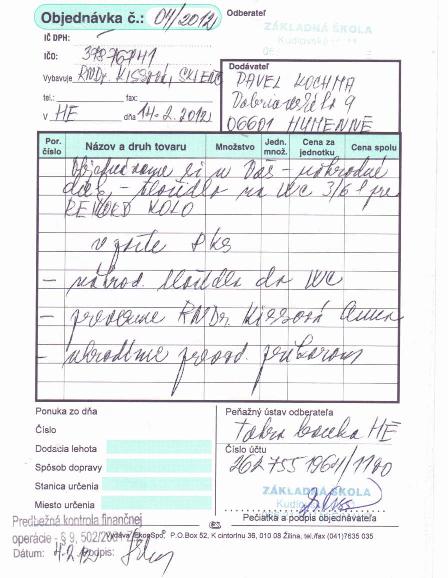 Objednávka č.: 04/2012
Odberateľ
ZÁKLADNÁ ŠKOLA
Kudlovská
IČ DPH:
IČO: 37876741
Vybavuje RNDr. Kissová,
tel.: fax:
V HE dňa 14.2.2012
Dodávateľ
PAVEL KOCHMA
9
06601 HUMENNÉ
Por. číslo
Názov a druh tovaru
Množstvo
Jedn. množ.
Cena za jednotku
Cena spolu
Objednávame si u Vás - náhradné
diely - tlačidlo na WC 3/6 l pre
KOLO
v počte 8 ks
- náhrad. tlačidlo do WC
- prevezme RNDr. Kissová
- uhradíme prevod. príkazom
Ponuka zo dňa
Číslo
Dodacia lehota
Spôsob dopravy
Stanica určenia
Miesto určenia
Peňažný ústav odberateľa
Tatra banka HE
Číslo účtu
262 755 1964/1100
ZÁKLADNÁ ŠKOLA
Pečiatka a podpis objednávateľa
Predbežná kontrola finančnej
operácie - § 9, 502/2001
Vydáva EkonSpo, P.O.Box 52, K cintorínu 36, 010 08 Žilina, tel./fax (041)7635 035
Dátum: Podpis: